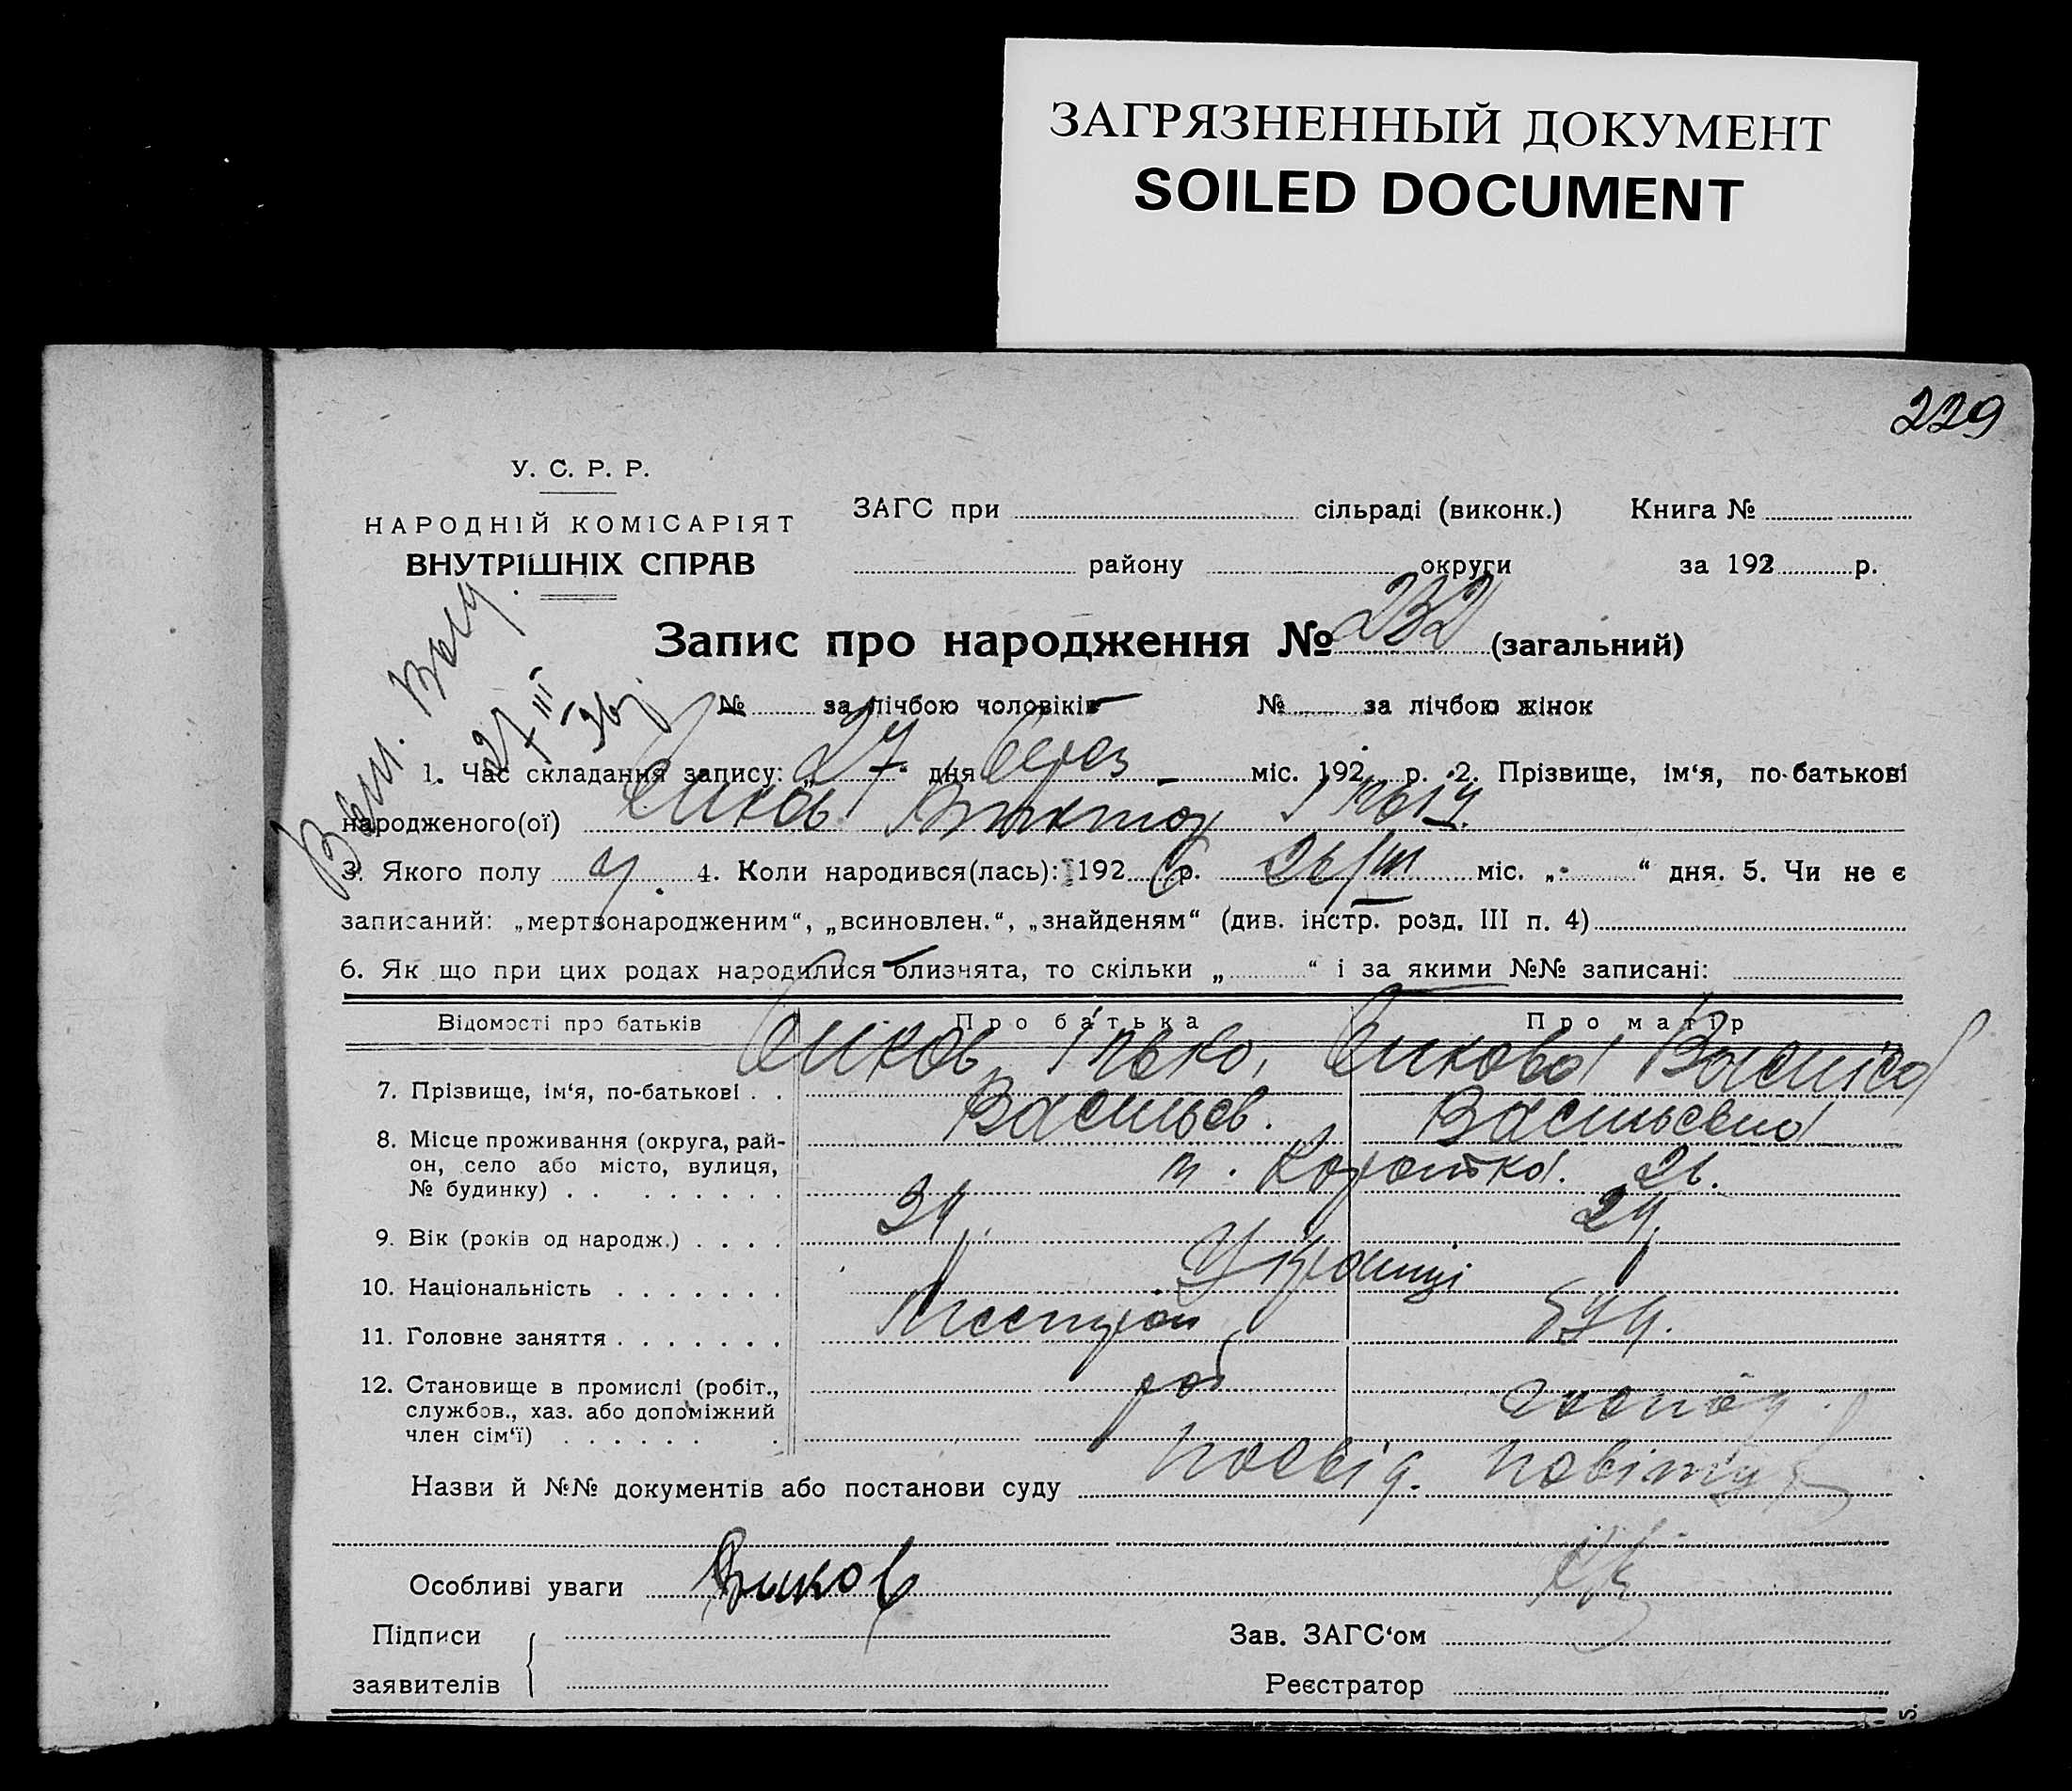 ЗАГРЯЗНЕННЫЙ ДОКУМЕНТ
SOILED DOCUMENT
229
У. С. Р. Р.
НАРОДНІЙ КОМІСАРІЯТ
ВНУТРІШНІХ СПРАВ
ЗАГС при сільраді (виконк.) Книга №
району округи за 192 р.
Запис про народження № 232 (загальний)
№ за лічбою чоловіків № за лічбою жінок
27 III
1. Час складання запису: „27“ дня Берез міс. 192 р. 2. Прізвище, ім‘я, по-батькові
народженого(ої) Виктор
3. Якого полу ч. 4. Коли народився(лась): 192 6 р. 26/III міс. „ “ дня. 5. Чи не є
записаний: „мертвонародженим“, „всиновлен.“, „знайденям“ (див. інстр. розд. III п. 4)
6. Як що при цих родах народилися близнята, то скільки „ “ і за якими №№ записані:
Відомості про батьків Про батька Про матір
7. Прізвище, ім‘я, по-батькові Ілько, Васильев. Васильевна
8. Місце проживання (округа, рай-
он, село або місто, вулиця,
№ будинку) Коротка. 26.
9. Вік (років од народж.) 34 24
10. Національність Українці
11. Головне заняття
12. Становище в промислі (робіт.,
службов., хаз. або допоміжний
член сім‘ї) роб господ.
Назви й №№ документів або постанови суду посвід.
Особливі уваги
Підписи
заявителів
Зав. ЗАГС‘ом
Реєстратор